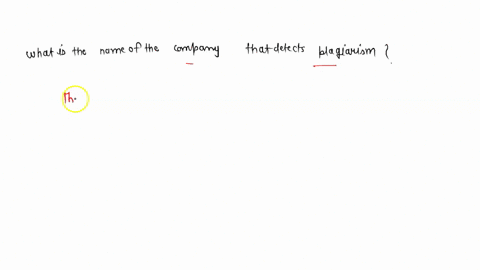 what is the name of the company that detects plagiarism ?
Th